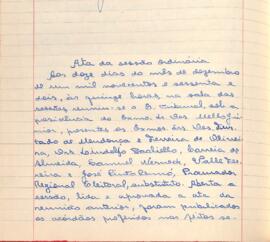 Ata da sessão ordinária
Aos doze dias do mês de dezembro
de um mil novecentos e sessenta e
dois, às quinze horas, na sala das
sessões reuniu-se o E. Tribunal, sob a
presidência do Exmo. Sr. Des. Mello
presentes os Exmos. Srs. Des. Fur-
tado de Mendonça e Ferreira de Olivei-
ra, Drs. Lindolfo Correia de
Almeida, Samuel Werneck, Valle Fer-
reira e José Pinto Procurador
Regional Eleitoral, substituto. Aberta a
sessão, lida e aprovada a ata da
reunião anterior, foram publicados
os acórdãos proferidos nos feitos se-